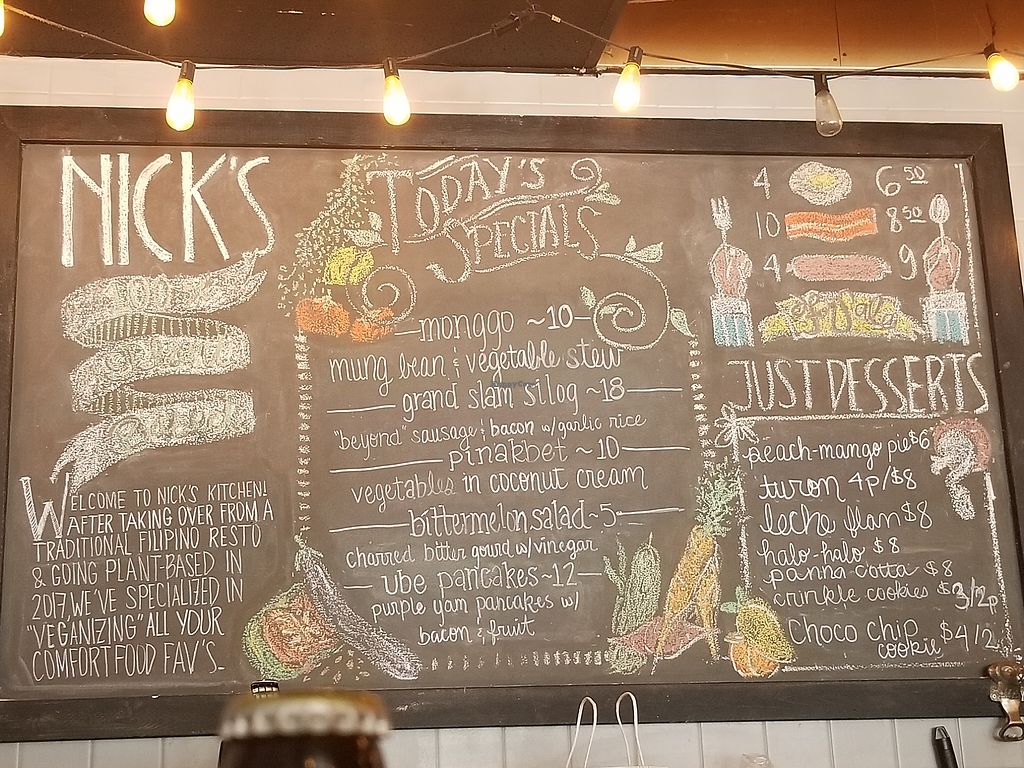 NICK'S
100%
WELCOME TO NICK'S KITCHEN!
AFTER TAKING OVER FROM A
TRADITIONAL FILIPINO RESTO
& GOING PLANT-BASED IN
2017, WE'VE SPECIALIZED IN
"VEGANIZING" ALL YOUR
COMFORT FOOD FAV'S.
TODAY'S
SPECIALS
monggo ~10
mung bean & vegetable stew
grand slam silog ~18
"beyond" sausage & bacon w/garlic rice
pinakbet ~10
vegetables in coconut cream
bittermelon salad ~5
charred bitter gourd w/vinegar
ube pancakes ~12
purple yam pancakes w/
bacon & fruit
4 6 50
10 8 50
4 9
JUST DESSERTS
peach-mango pie $6
turon 4p/$8
leche flan $8
halo-halo $8
panna cotta $8
crinkle cookies $3/2p
choco chip
cookie $4/2